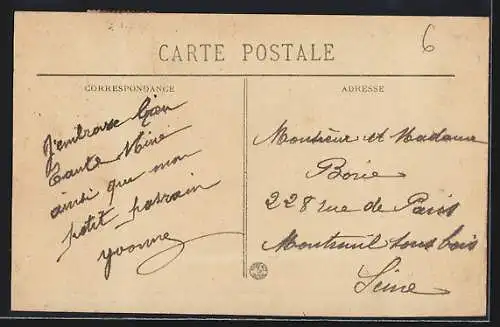 6
CARTE POSTALE
CORRESPONDANCE
ADRESSE
J'embrasse bien
tante Mimi
ainsi que mon
petit parrain
yvonne
Monsieur et Madame
Borie
228 rue de Paris
Montreuil sous bois
Seine